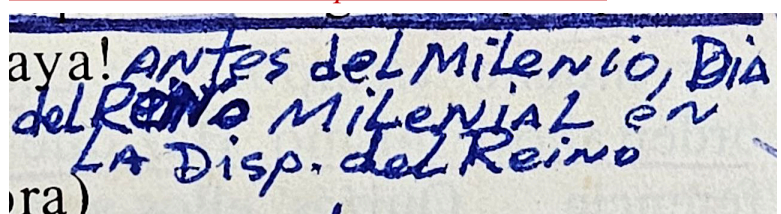 aya! ANtes del MiLeNio, Dia
del ReiNo MiLeNiAL en
LA Disp. del Reino
ora)